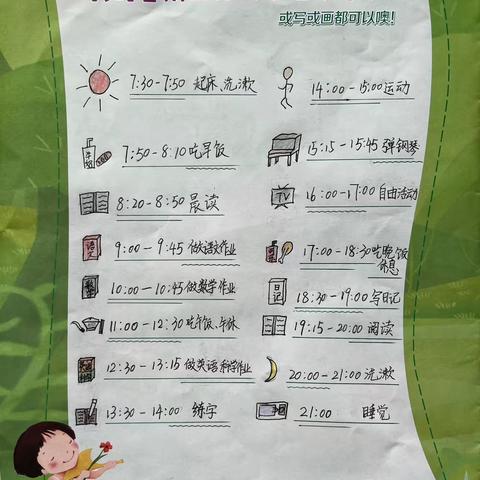 或写或画都可以噢!
7:30-7:50 起床、洗漱
7:50-8:10吃早饭
8:20-8:50 晨读
9:00-9:45 做语文作业
10:00-10:45做数学作业
11:00-12:30吃午饭、午休
12:30-13:15 做英语科学作业
13:30-14:00 练字
14:00-15:00运动
15:15-15:45 弹钢琴
TV
16:00-17:00 自由活动
17:00-18:30吃晚饭
休息
日记
18:30-19:00 写日记
19:15-20:00 阅读
20:00-21:00 洗漱
21:00 睡觉
语文